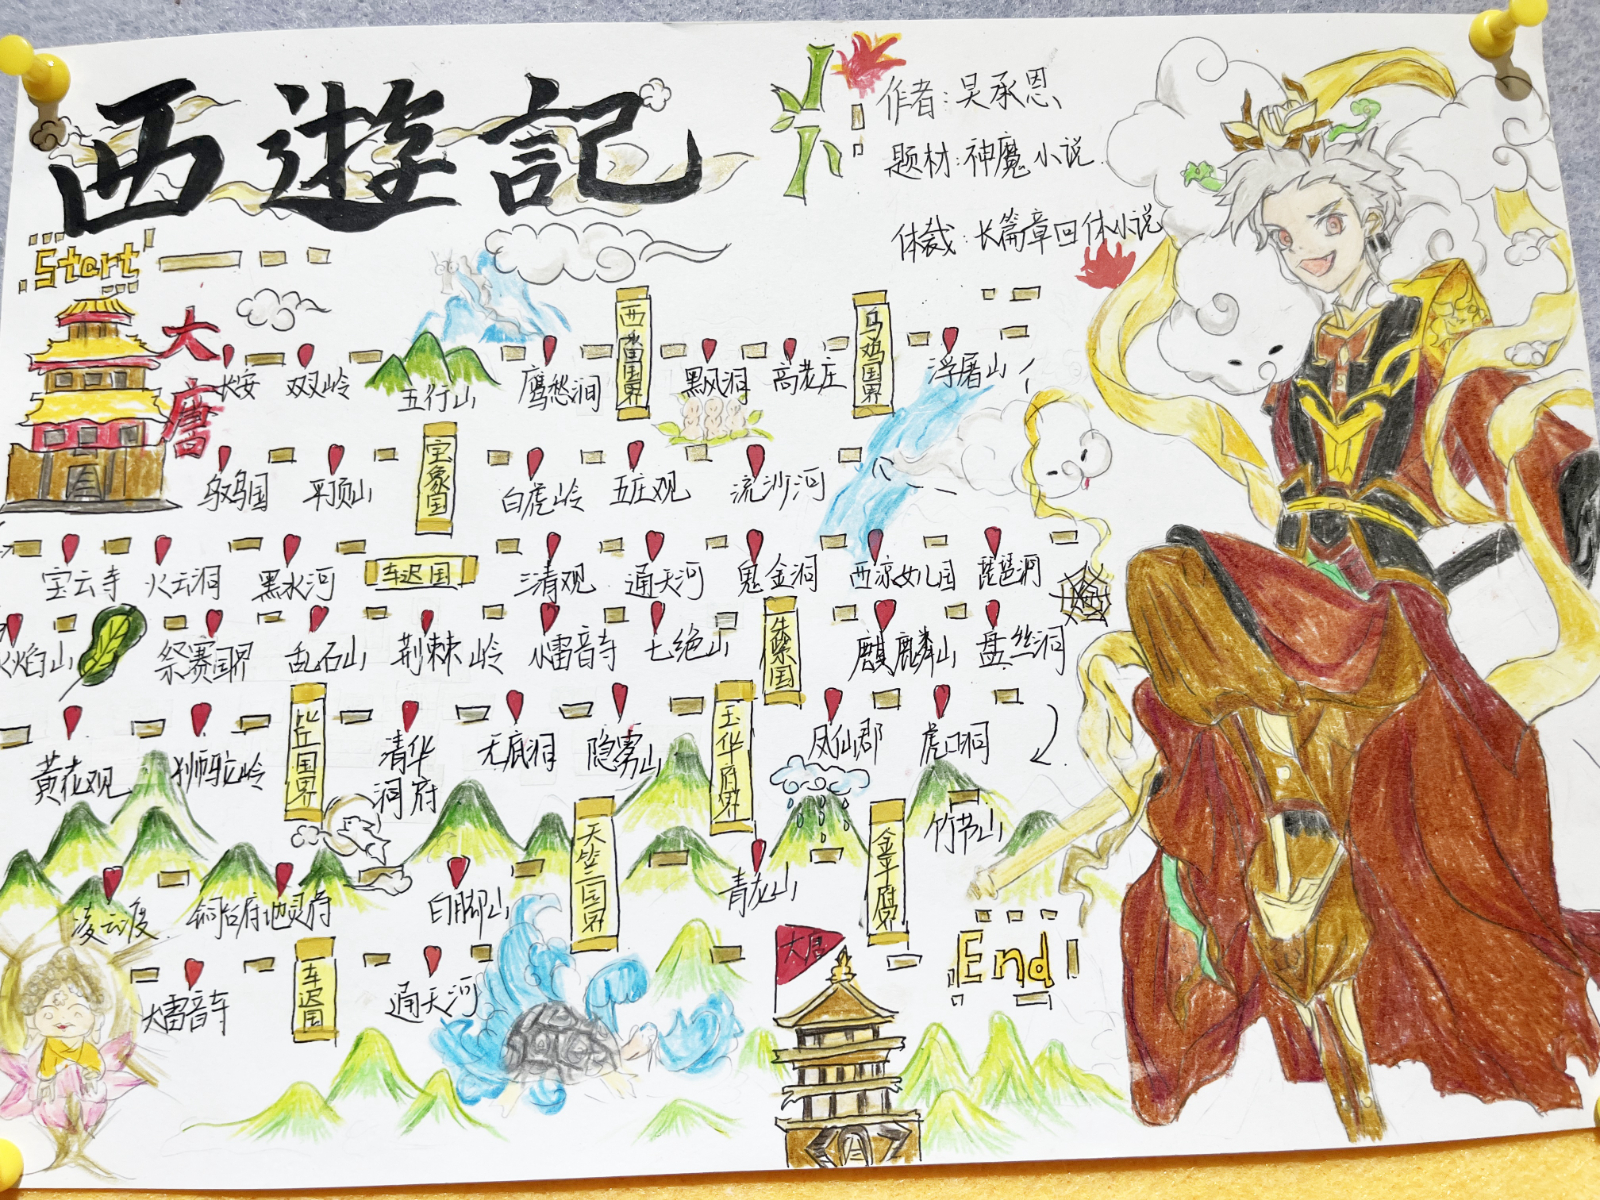 西遊記
作者:吴承恩
题材:神魔小说
体裁:长篇章回体小说
Start
大唐
长安 双叉岭 五行山 鹰愁涧 西番国界 黑风洞 高老庄 乌鸡国界 浮屠山
乌鸡国 平顶山 宝象国 白虎岭 五庄观 流沙河
宝云寺 火云洞 黑水河 车迟国 三清观 通天河 鬼金洞 西凉女儿国 琵琶洞
火焰山 祭赛国界 乱石山 荆棘岭 小雷音寺 七绝山 朱紫国 麒麟山 盘丝洞
黄花观 狮驼岭 比丘国界 清华洞府 无底洞 隐雾山 玉华府界 凤仙郡 虎口洞
凌云渡 铜台府地灵府 白脚山 天竺国界 青龙山 金平府界 竹节山
大雷音寺 车迟国 通天河
End